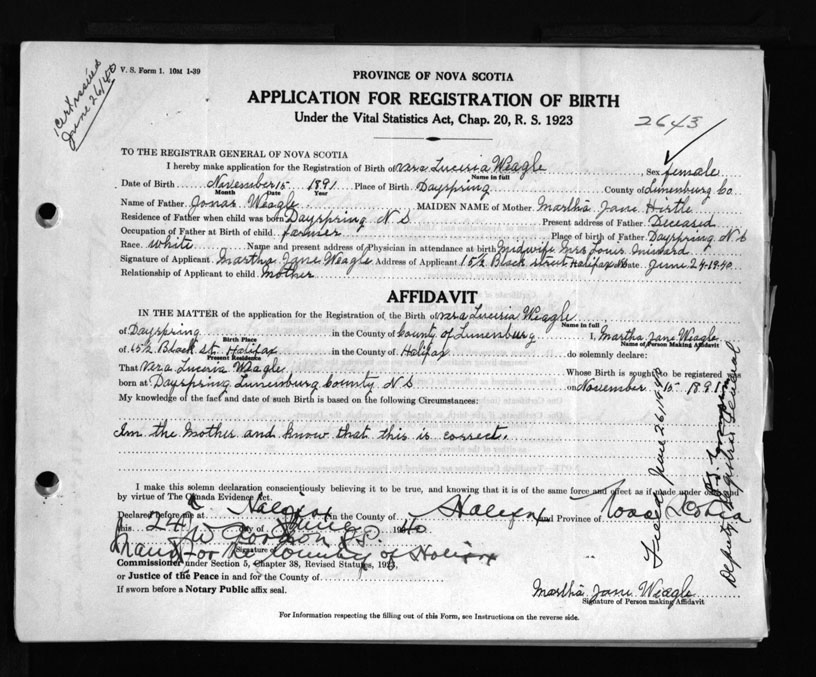 Cert issued
June 26/40
V. S. Form 1. 10M 1-39
PROVINCE OF NOVA SCOTIA
APPLICATION FOR REGISTRATION OF BIRTH
Under the Vital Statistics Act, Chap. 20, R. S. 1923
2643
TO THE REGISTRAR GENERAL OF NOVA SCOTIA
I hereby make application for the Registration of Birth of Vara Luceria Weagle, Sex female
Name in full
Date of Birth November 15 1891 Place of Birth Dayspring County of Lunenburg Co
Month Date Year
Name of Father Jonas Weagle MAIDEN NAME of Mother Martha Jane Hirtle
Residence of Father when child was born Dayspring N S Present address of Father Deceased
Occupation of Father at Birth of child farmer Place of Birth of Father Dayspring N S
Race white Name and present address of Physician in attendance at birth Midwife Mrs Louis
Signature of Applicant Martha Jane Weagle Address of Applicant 15½ Black street Halifax Date June 24-1940
Relationship of Applicant to child Mother
AFFIDAVIT
IN THE MATTER of the application for the Registration of the Birth of Vara Luceria Weagle
Name in full
of Dayspring in the County of County of Lunenburg I, Martha Jane Weagle
Birth Place
Name of Person Making Affidavit
of 15½ Black st. Halifax in the County of Halifax do solemnly declare:
Present Residence
That Vara Luceria Weagle Whose Birth is sought to be registered was
born at Dayspring Lunenburg County N S on November 15 1891
My knowledge of the fact and date of such Birth is based on the following Circumstances:
Im the Mother and know that this is correct.
I make this solemn declaration conscientiously believing it to be true, and knowing that it is of the same force and effect as if made under oath and
by virtue of The Canada Evidence Act.
Declared before me at Halifax in the County of Halifax and Province of Nova Scotia
this 24th day of June 1940
Gordon J.P.
Signature
in and for the County of Halifax
Commissioner under Section 5, Chapter 38, Revised Statutes, 1923.
or Justice of the Peace in and for the County of
If sworn before a Notary Public affix seal.
Martha Jane Weagle
Signature of Person making Affidavit
For Information respecting the filling out of this Form, see Instructions on the reverse side.
Filed June 26/1940
Deputy Registrar General